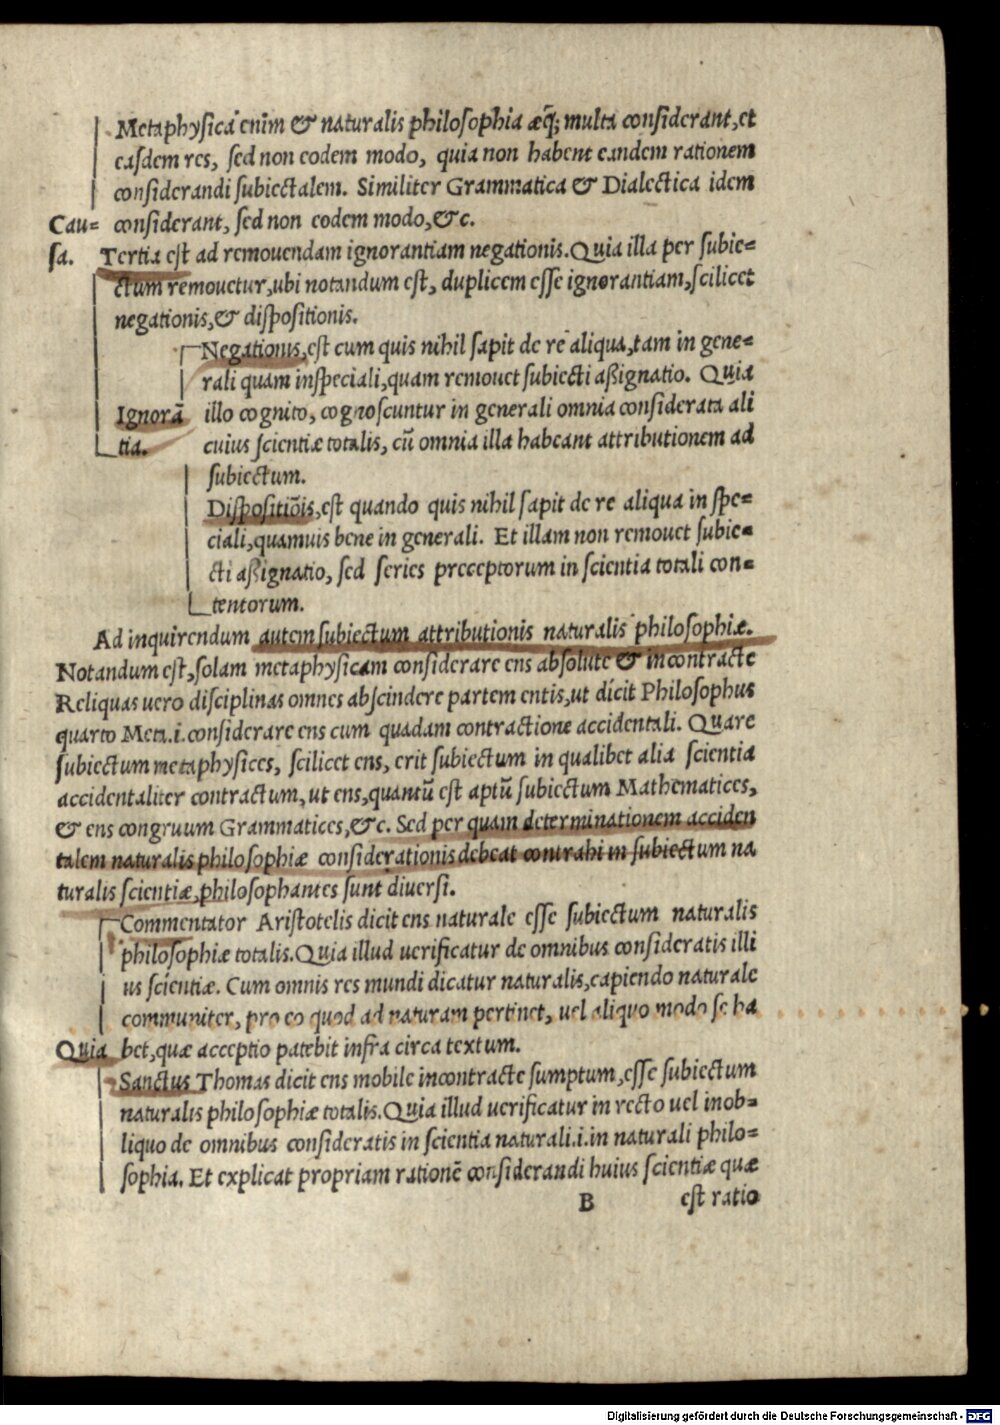 Metaphysica enim & naturalis philosophia æq̃; multa considerant, et
easdem res, sed non eodem modo, quia non habent eandem rationem
considerandi subiectalem. Similiter Grammatica & Dialectica idem
Cau= considerant, sed non eodem modo, &c.
sa. Tertia est ad remouendam ignorantiam negationis. Quia illa per subie=
ctum remouetur, ubi notandum est, duplicem esse ignorantiam, scilicet
negationis, & dispositionis.
Negationis, est cum quis nihil sapit de re aliqua, tam in gene=
rali quam inspeciali, quam remouet subiecti aßignatio. Quia
Ignorã illo cognito, cognoscuntur in generali omnia considerata ali
tia. cuius scientiæ totalis, cũ omnia illa habeant attributionem ad
subiectum.
Dispositiõis, est quando quis nihil sapit de re aliqua in spe=
ciali, quamuis bene in generali. Et illam non remouet subie=
cti aßignatio, sed series preceptorum in scientia totali con=
tentorum.
Ad inquirendum autem subiectum attributionis naturalis philosophiæ.
Notandum est, solam metaphysicam considerare ens absolute & incontracte
Reliquas uero disciplinas omnes abscindere partem entis, ut dicit Philosophus
quarto Meta. i. considerare ens cum quadam contractione accidentali. Quare
subiectum metaphysices, scilicet ens, erit subiectum in qualibet alia scientia
accidentaliter contractum, ut ens, quantũ est aptũ subiectum Mathematices,
& ens congruum Grammatices, &c. Sed per quam determinationem acciden
talem naturalis philosophiæ considerationis debeat contrahi in subiectum na
turalis scientiæ, philosophantes sunt diuersi.
Commentator Aristotelis dicit ens naturale esse subiectum naturalis
philosophiæ totalis. Quia illud uerificatur de omnibus consideratis illi
us scientiæ. Cum omnis res mundi dicatur naturalis, capiendo naturale
communiter, pro eo quod ad naturam pertinet, uel aliquo modo se ha
Quia bet, quæ acceptio patebit infra circa textum.
Sanctus Thomas dicit ens mobile incontracte sumptum, esse subiectum
naturalis philosophiæ totalis. Quia illud uerificatur in recto uel inob=
liquo de omnibus consideratis in scientia naturali. i. in naturali philo=
sophia. Et explicat propriam rationẽ considerandi huius scientiæ quæ
B est ratio
Digitalisierung gefördert durch die Deutsche Forschungsgemeinschaft - DFG